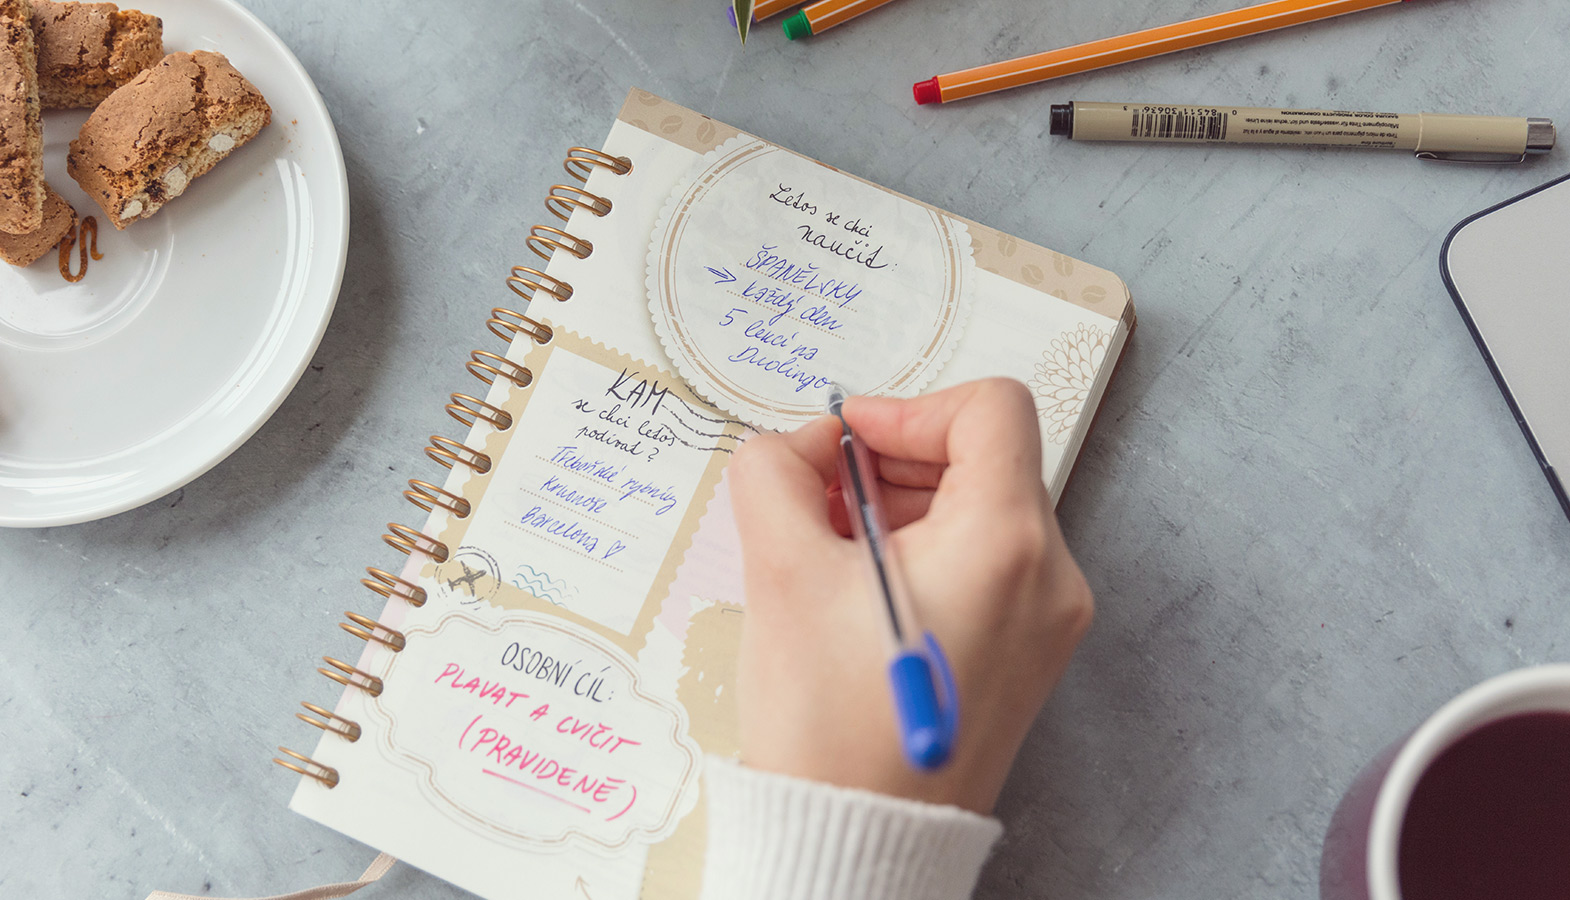 Letos se chci
naučit:
ŠPANĚLSKY
⇒ každý den
5 lekcí na
Duolingo
KAM
se chci letos
podívat?
Třeboňské rybníky
Krkonoše
Barcelona ♡
OSOBNÍ CÍL:
PLAVAT A CVIČIT
(PRAVIDENĚ)
0 84511 30636 3